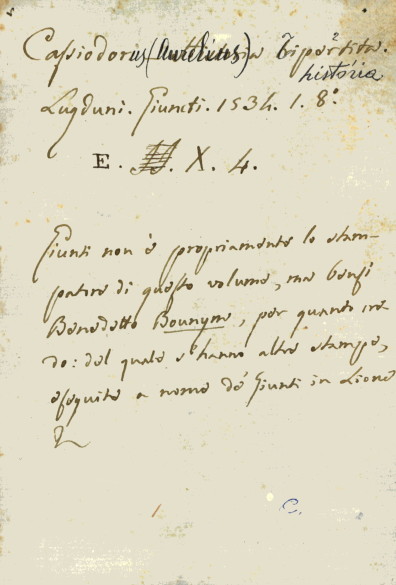 Cassiodorus (Aurelius) Tripartita.
história
Lugduni. Giunti. 1534. 1. 8º
E. X. 4.
Giunti non è propriamente lo stam-
patore di questo volume, ma bensì
Benedetto Bounyne, per quanto cre-
do: del quale s'hanno altre stampe,
eseguite a nome de' Giunti in Lione
C.